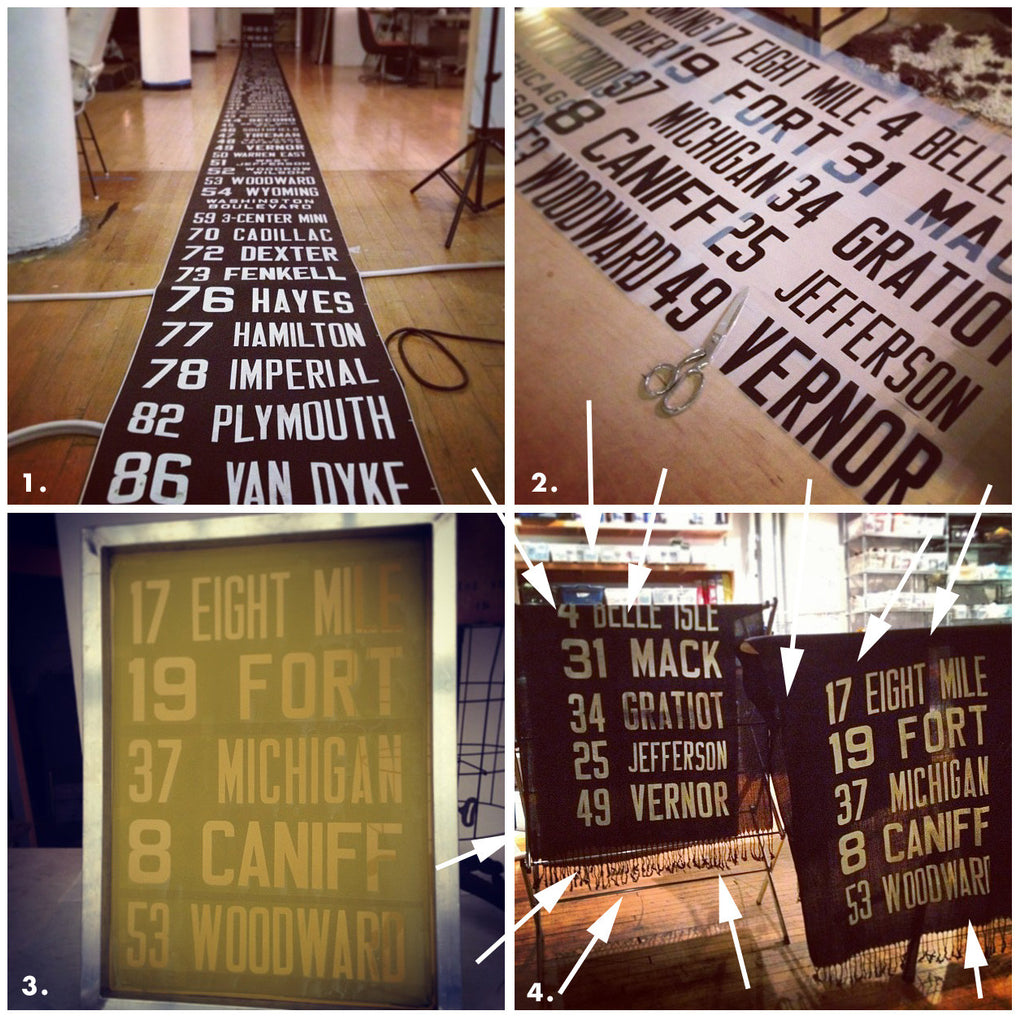 44 SECOND
46 SOUTHFIELD
47 TIREMAN
49 VERNOR
50 WARREN EAST
51 JEFFERSON
52 WOODROW WILSON
53 WOODWARD
54 WYOMING
WASHINGTON
BOULEVARD
59 3-CENTER MINI
70 CADILLAC
72 DEXTER
73 FENKELL
76 HAYES
77 HAMILTON
78 IMPERIAL
82 PLYMOUTH
86 VAN DYKE
1.
17 EIGHT MILE 4 BELLE
RIVER 19 FORT 31 MAC
37 MICHIGAN 34 GRATIOT
8 CANIFF 25 JEFFERSON
53 WOODWARD 49 VERNOR
2.
17 EIGHT MILE
19 FORT
37 MICHIGAN
8 CANIFF
53 WOODWARD
3.
4 BELLE ISLE
31 MACK
34 GRATIOT
25 JEFFERSON
49 VERNOR
17 EIGHT MILE
19 FORT
37 MICHIGAN
8 CANIFF
53 WOODWARD
4.